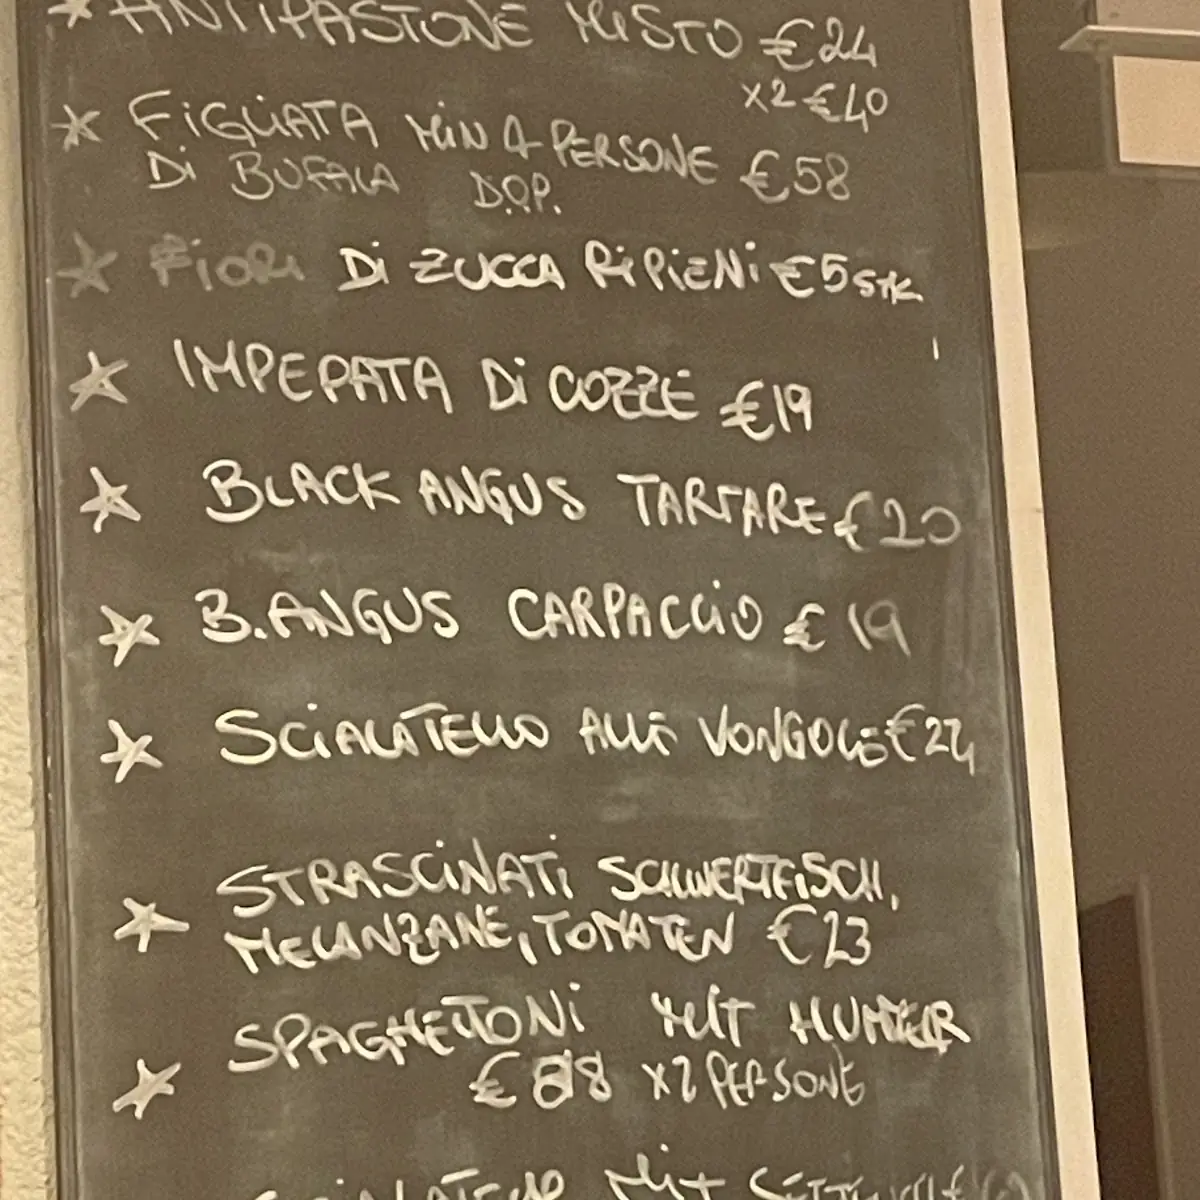 * ANTIPASTONE MISTO €24
x2 €40
* FIGLIATA MIN 4 PERSONE €58
DI BUFALA D.O.P.
* FIORI DI ZUCCA RIPIENI €5 STK
* IMPEPATA DI COZZE €19
* BLACK ANGUS TARTARE €20
* B.ANGUS CARPACCIO €19
* SCIALATELLO ALLE VONGOLE €22
* STRASCINATI SCHWERTFISCH,
MELANZANE, TOMATEN €23
* SPAGHETTONI MIT HUMMER
x2 PERSONE
SCIALATELLO MIT